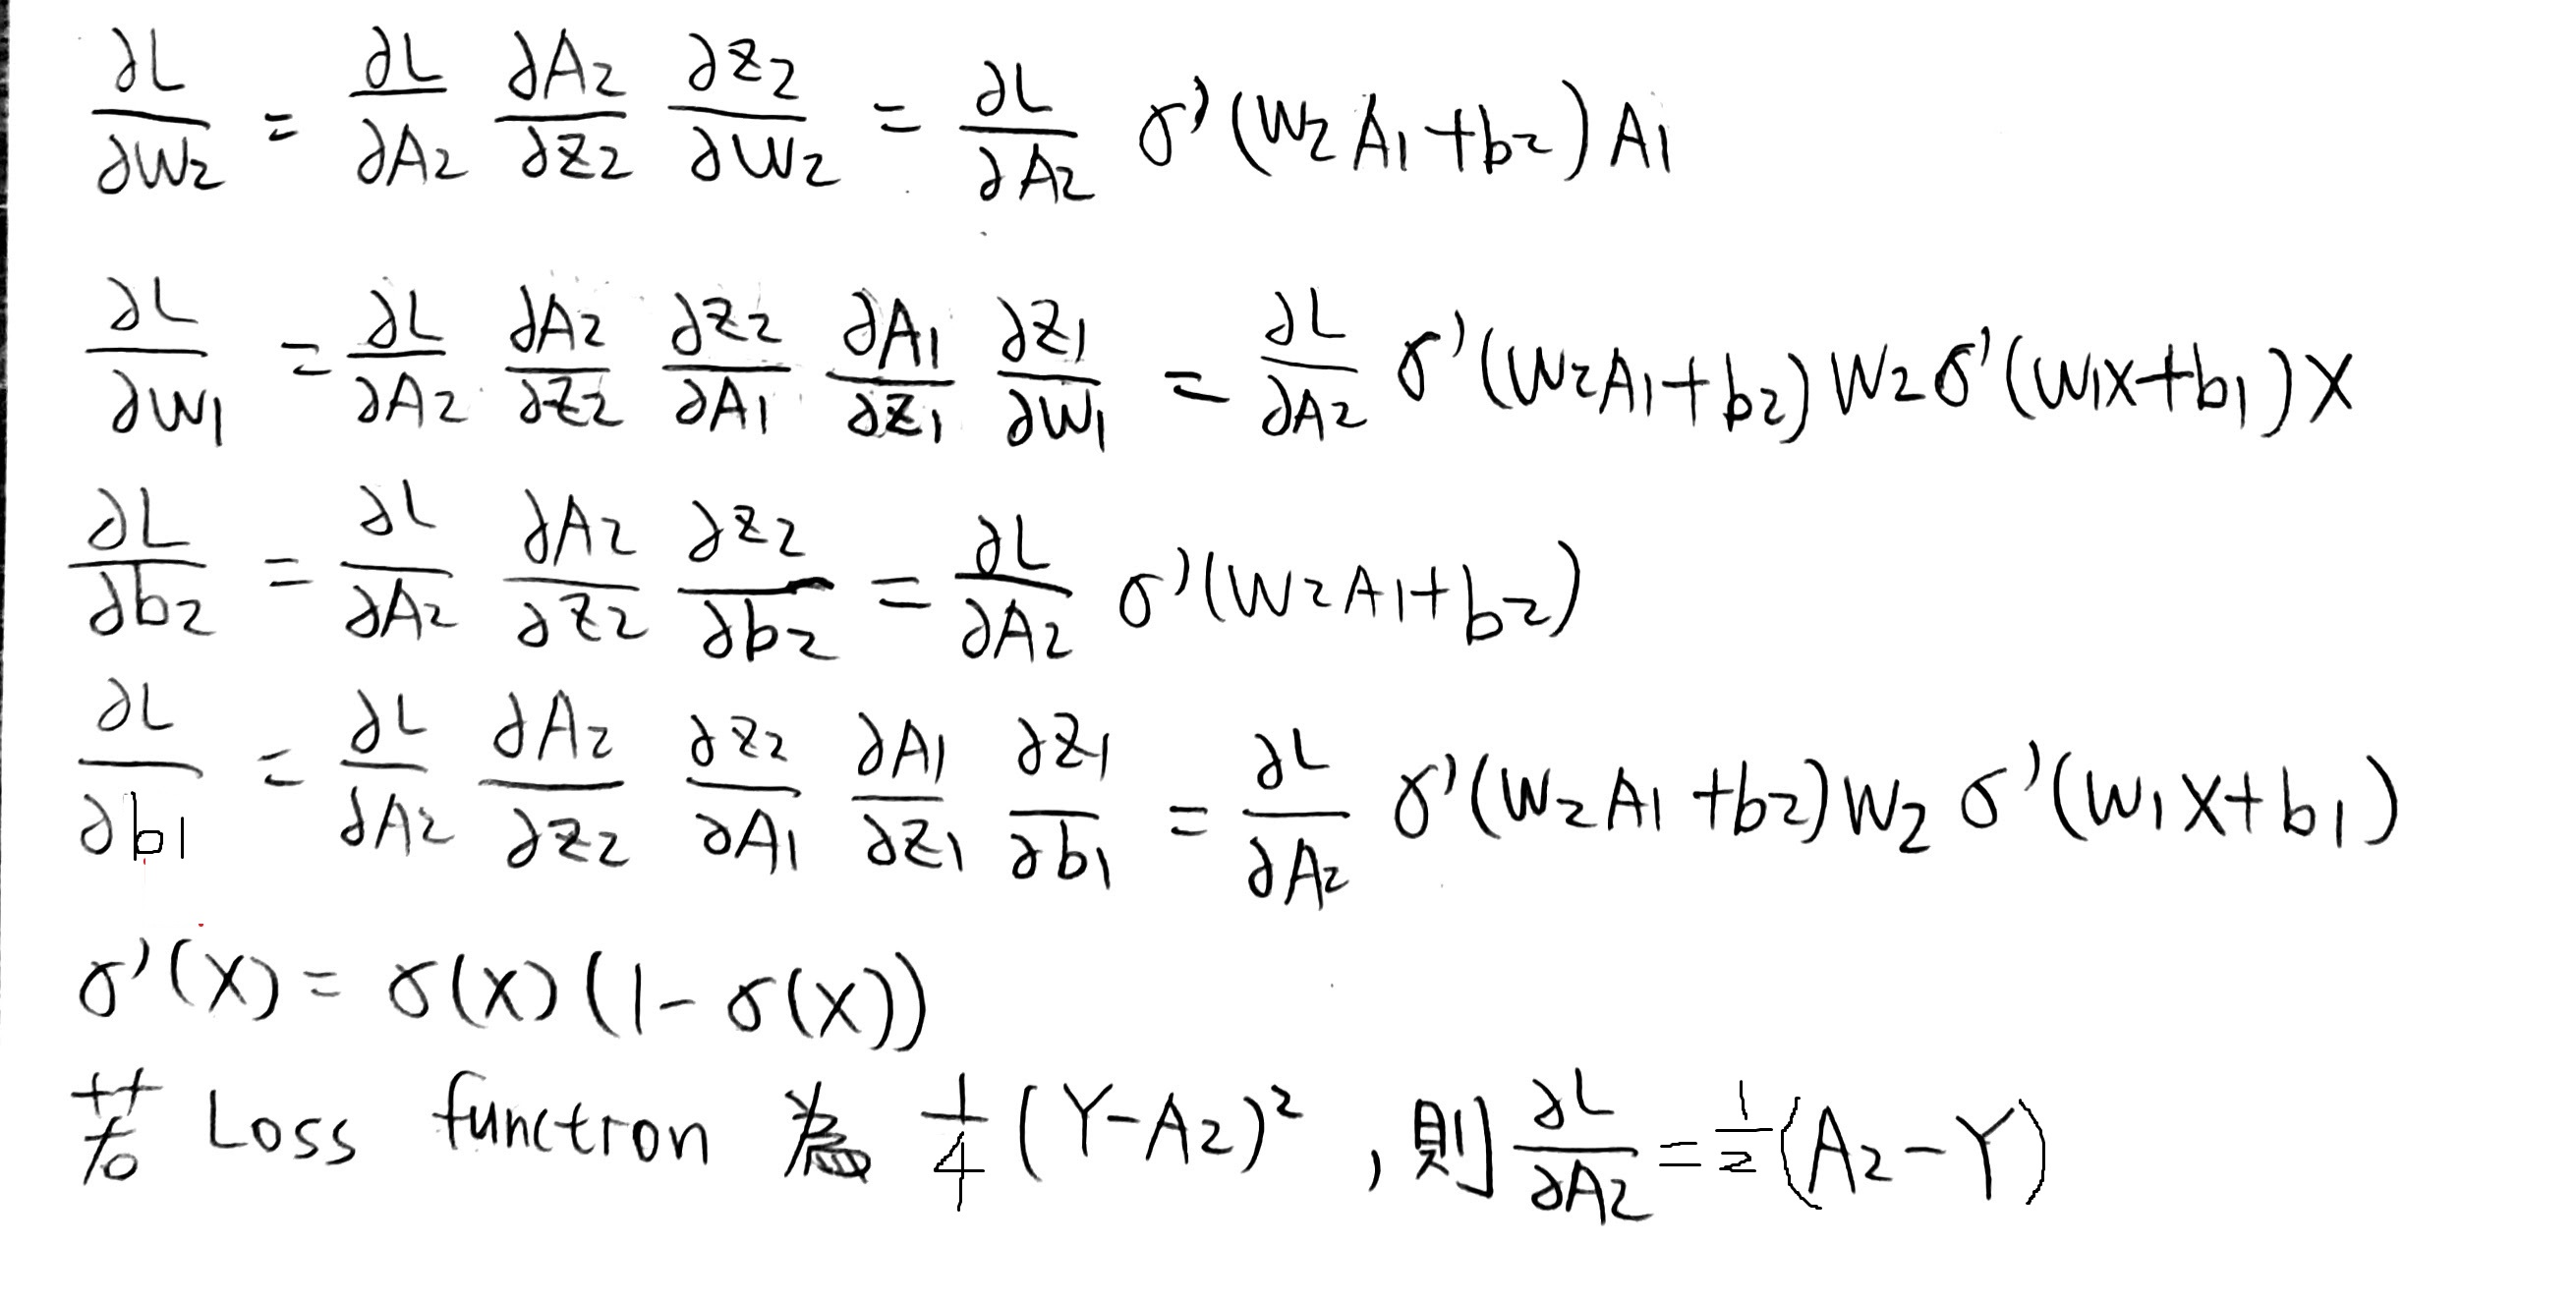 ∂L/∂W2 = ∂L/∂A2 ∂A2/∂Z2 ∂Z2/∂W2 = ∂L/∂A2 σ'(W2A1+b2)A1
∂L/∂W1 = ∂L/∂A2 ∂A2/∂Z2 ∂Z2/∂A1 ∂A1/∂Z1 ∂Z1/∂W1 = ∂L/∂A2 σ'(W2A1+b2)W2σ'(W1X+b1)X
∂L/∂b2 = ∂L/∂A2 ∂A2/∂Z2 ∂Z2/∂b2 = ∂L/∂A2 σ'(W2A1+b2)
∂L/∂b1 = ∂L/∂A2 ∂A2/∂Z2 ∂Z2/∂A1 ∂A1/∂Z1 ∂Z1/∂b1 = ∂L/∂A2 σ'(W2A1+b2)W2σ'(W1X+b1)
σ'(X) = σ(X)(1-σ(X))
若 Loss function 為 1/4(Y-A2)², 則 ∂L/∂A2 = 1/2(A2-Y)